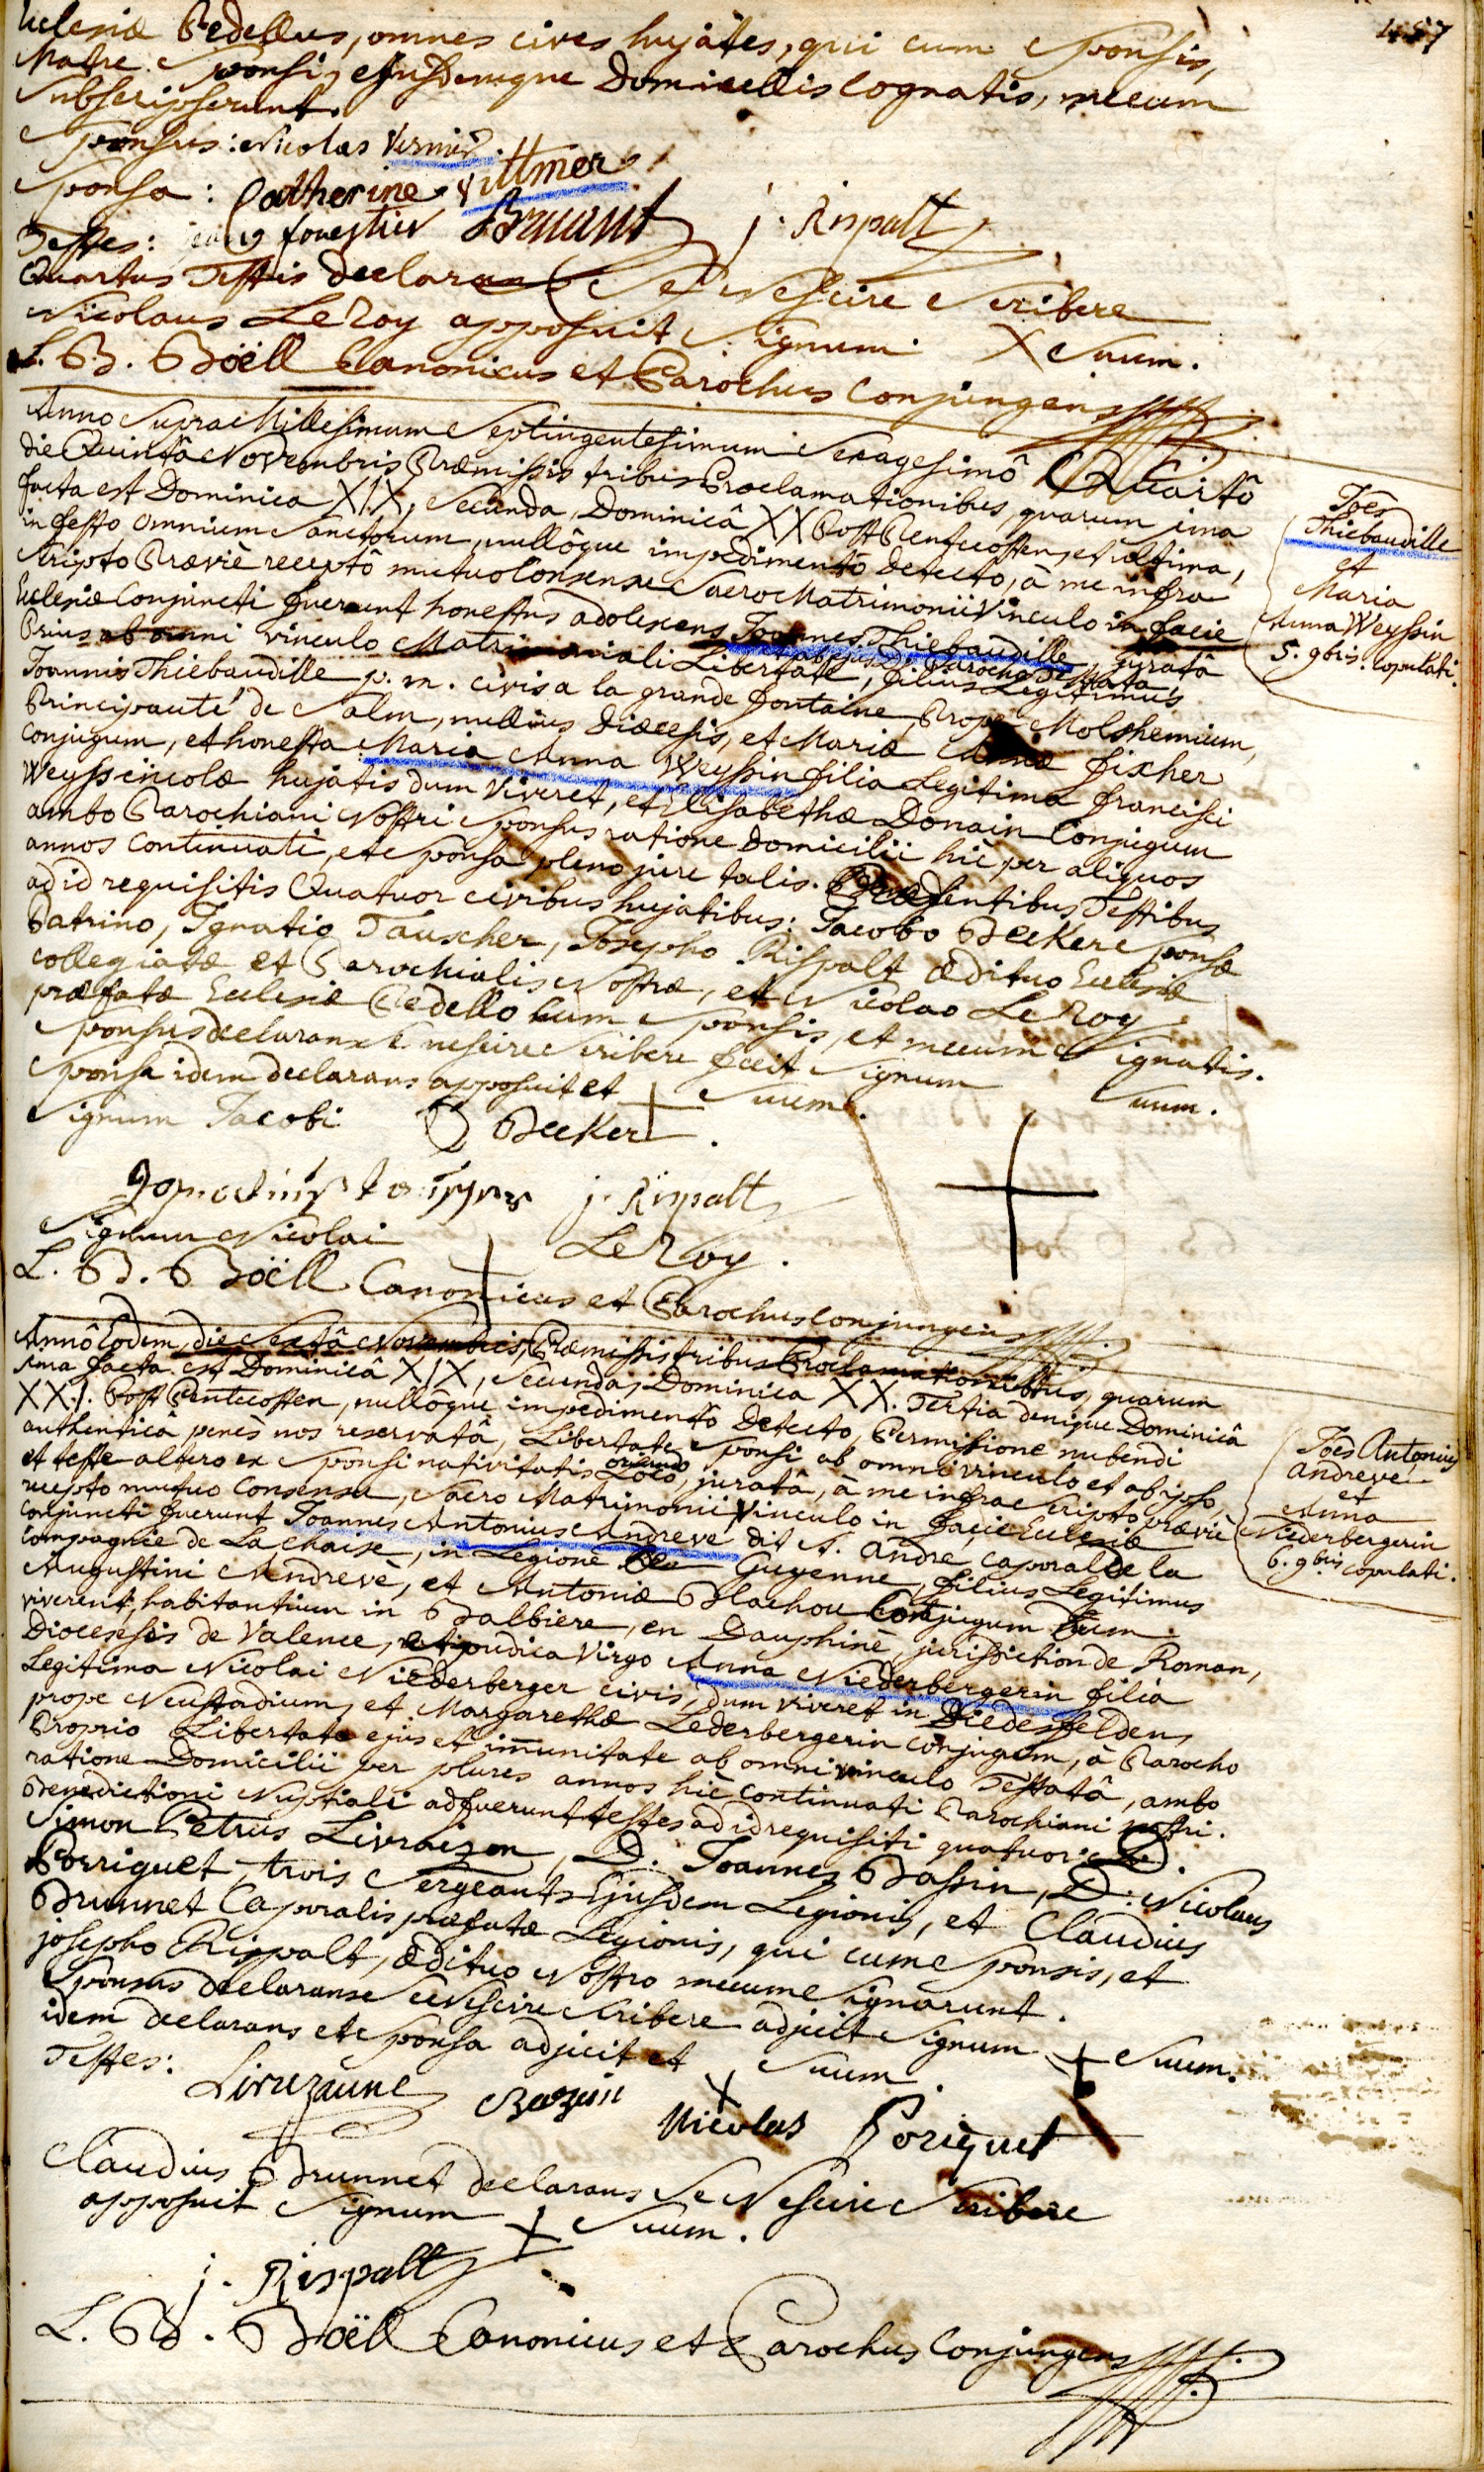 457
Ecclesiæ Pedellus, omnes cives hujátes, qui cum Sponsis,
Matre Sponsi, ejusdemque Domicellis Cognatis, mecum
Subscripserunt.
Sponsus: Nicolas Vernier
Sponsa: Catherine Vittmer
Testes: jean forestier Bruant j. Rispalt
Quartus Testis declarans Se Nescire Scribere
Nicolaus Le Roy apposuit Signum X Suum.
L. B. Böell Canonicus et Parochus Conjungens
Anno Supra Millesimum Septingentesimum Sexagesimô Quartô
die Quintâ Novembris Præmissis tribus Proclamationibus, quarum ima
facta est Dominica XIX, Secunda, Dominicâ XX Post Pentecosten, et ultima,
in festo Omnium Sanctorum, nullôque impedimentô detecto, à me infra
Scripto Præviè receptô mutuo Consensu Sacro Matrimonii Vinculo in facie
Ecclesiæ Conjuncti fuerunt honestus adolescens Joannes Thiebaudille, juratâ
Prius ab omni vinculo Matrimoniali Libertate, filius Legitimus
Joannis Thiebaudille p. m. civis a la grande fontaine Prope Molshemium,
Principauté de Salm, nullius Diæcesis, et Mariæ Annæ fixher
Conjugum, et honesta Maria Anna Weyssin filia Legitima francisci
Weyss incolæ hujátis dum Viveret, et Elisabethæ Donain Conjugum
ambo Parochiani Nostri Sponsus ratione Domicilii hîc per aliquos
annos Continuati, et Sponsa pleno jure talis. Præsentibus Testibus
ad id requisitis Quatuor civibus hujatibus: Jacobo Becker Sponsæ
Patrino, Ignatio Tauscher, Josepho Rispalt ædituo Ecclesiæ
Collegiatæ et Parochialis Nostræ, et Nicolao Le Roy
præfatæ Ecclesiæ Pedello Cum Sponsis, et mecum Signatis.
Sponsus declarans Se nescire Scribere fecit Signum + Suum.
Sponsa idem declarans apposuit et + Suum.
Signum Jacobi Becker.
j. Rispalt
Signum Nicolai + Le Roy.
L. B. Böell Canonicus et Parochus Conjungens
Annô Eodem, die Sextâ Novembris, Præmissis tribus Proclamationibus, quarum
ima facta est Dominicâ XIX, Secunda, Dominica XX. Tertia denique Dominicâ
XXI. Post Pentecosten, nullôque impedimentô detecto, Permissione nubendi
authenticâ penès nos reservatâ, Libertate Sponsi ab omni vinculo et ab ipso,
et teste altero ex Sponsi nativitatis oriundo Loco, juratâ, à me infra Scripto præviè
recepto mutuo Consensu, Sacro Matrimonii Vinculo in facie Ecclesiæ
Conjuncti fuerunt Joannes Antonius Andreve dit St. andre, caporal de la
Compagnie de La Chaise, in Legione Guyenne, filius Legitimus
Augustini Andrevè, et Antoniæ Blachou Conjugum dum
viverent, habitantium in Balbiere, en Dauphinè jurisdiction de Roman,
Diocesis de Valence, et pudica Virgo Anna Niederbergerin filia
Legitima Nicolai Niederberger civis, dum viveret in Diedesfelden,
prope Neustadium, et Margarethæ Lederbergerin Conjugum, à Parocho
Proprio Libertate ejus et imunitate ab omni vinculo Testatâ, ambo
ratione Domicilii per plures annos hîc Continuati Parochiani nostri.
Benedictioni Nuptiali adfuerunt testes ad id requisiti quatuor: D.
Simon Petrus Livraizon, D. Joannes Bassin, D: Nicolaus
Porriguet, trois Sergeants Ejusdem Legionis, et Claudius
Brunnet Caporalis præfatæ Legionis, qui cum Sponsis, et
josepho Rispalt, ædituo Nostro mecum Signarunt.
Sponsus declarans Se Nescire Scribere adjecit Signum + Suum.
idem declarans et Sponsa adjicit et X Suum.
Testes: Livrezaune Bazin Nicolas Poriquet
Claudius Brunnet declarans Se Nescire Scribere
apposuit Signum + Suum.
j. Rispalt
L. B. Böell Canonicus et Parochus Conjungens
Joes
Thiebaudille
et
Maria
Anna Weyssin
5. 9bris. Copulati.
Joes Antonius
andreve
et
Anna
Niederbergerin
6. 9bris copulati.